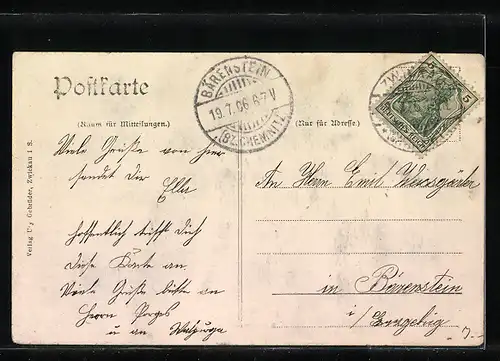 Postkarte
BÄRENSTEIN
19.7.06 6-7V
(BZ. CHEMNITZ)
(Raum für Mitteilungen.)
(Nur für Adresse.)
5 5
Verlag Gebrüder, Zwickau i S.
Viele Grüße von hier
sendet Dir
Ella
hoffentlich trifft Dich
Diese Karte an.
Viele Grüße bitte an
Herrn Porges
u an
An Herrn Emil
in Bärenstein
i/ Erzgebirg